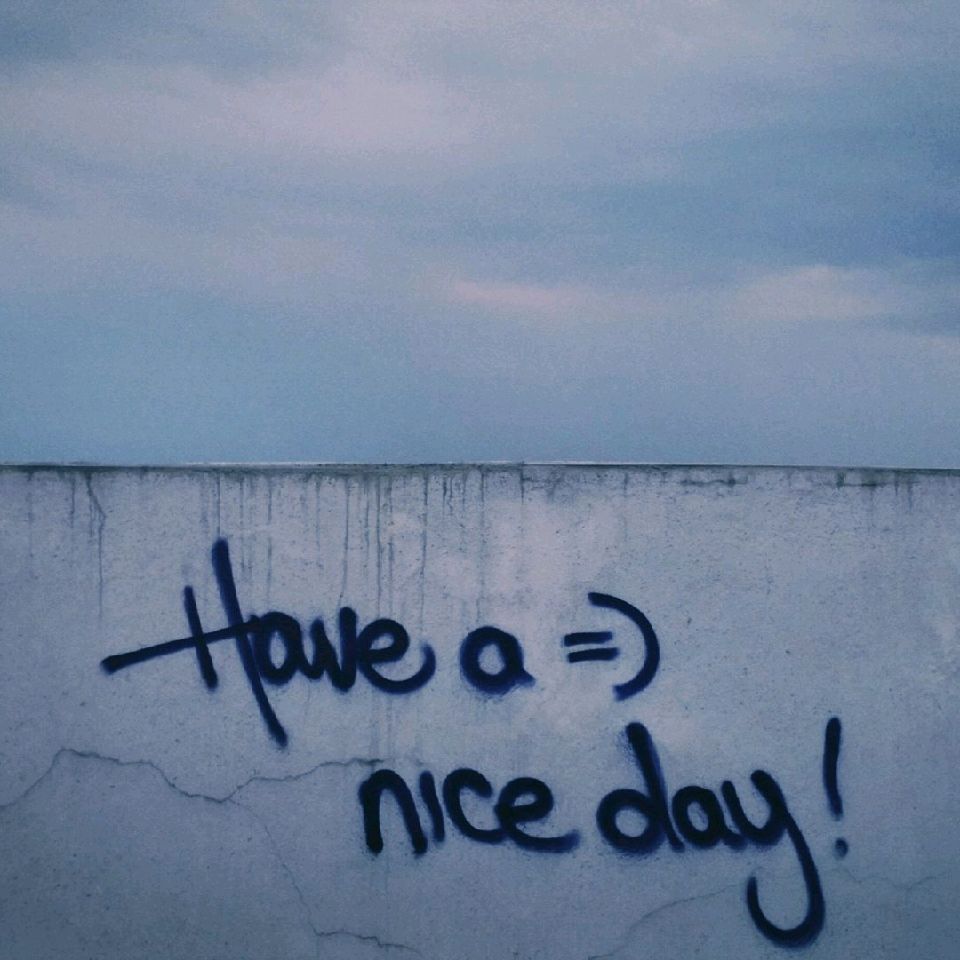 Have a =)
nice day!